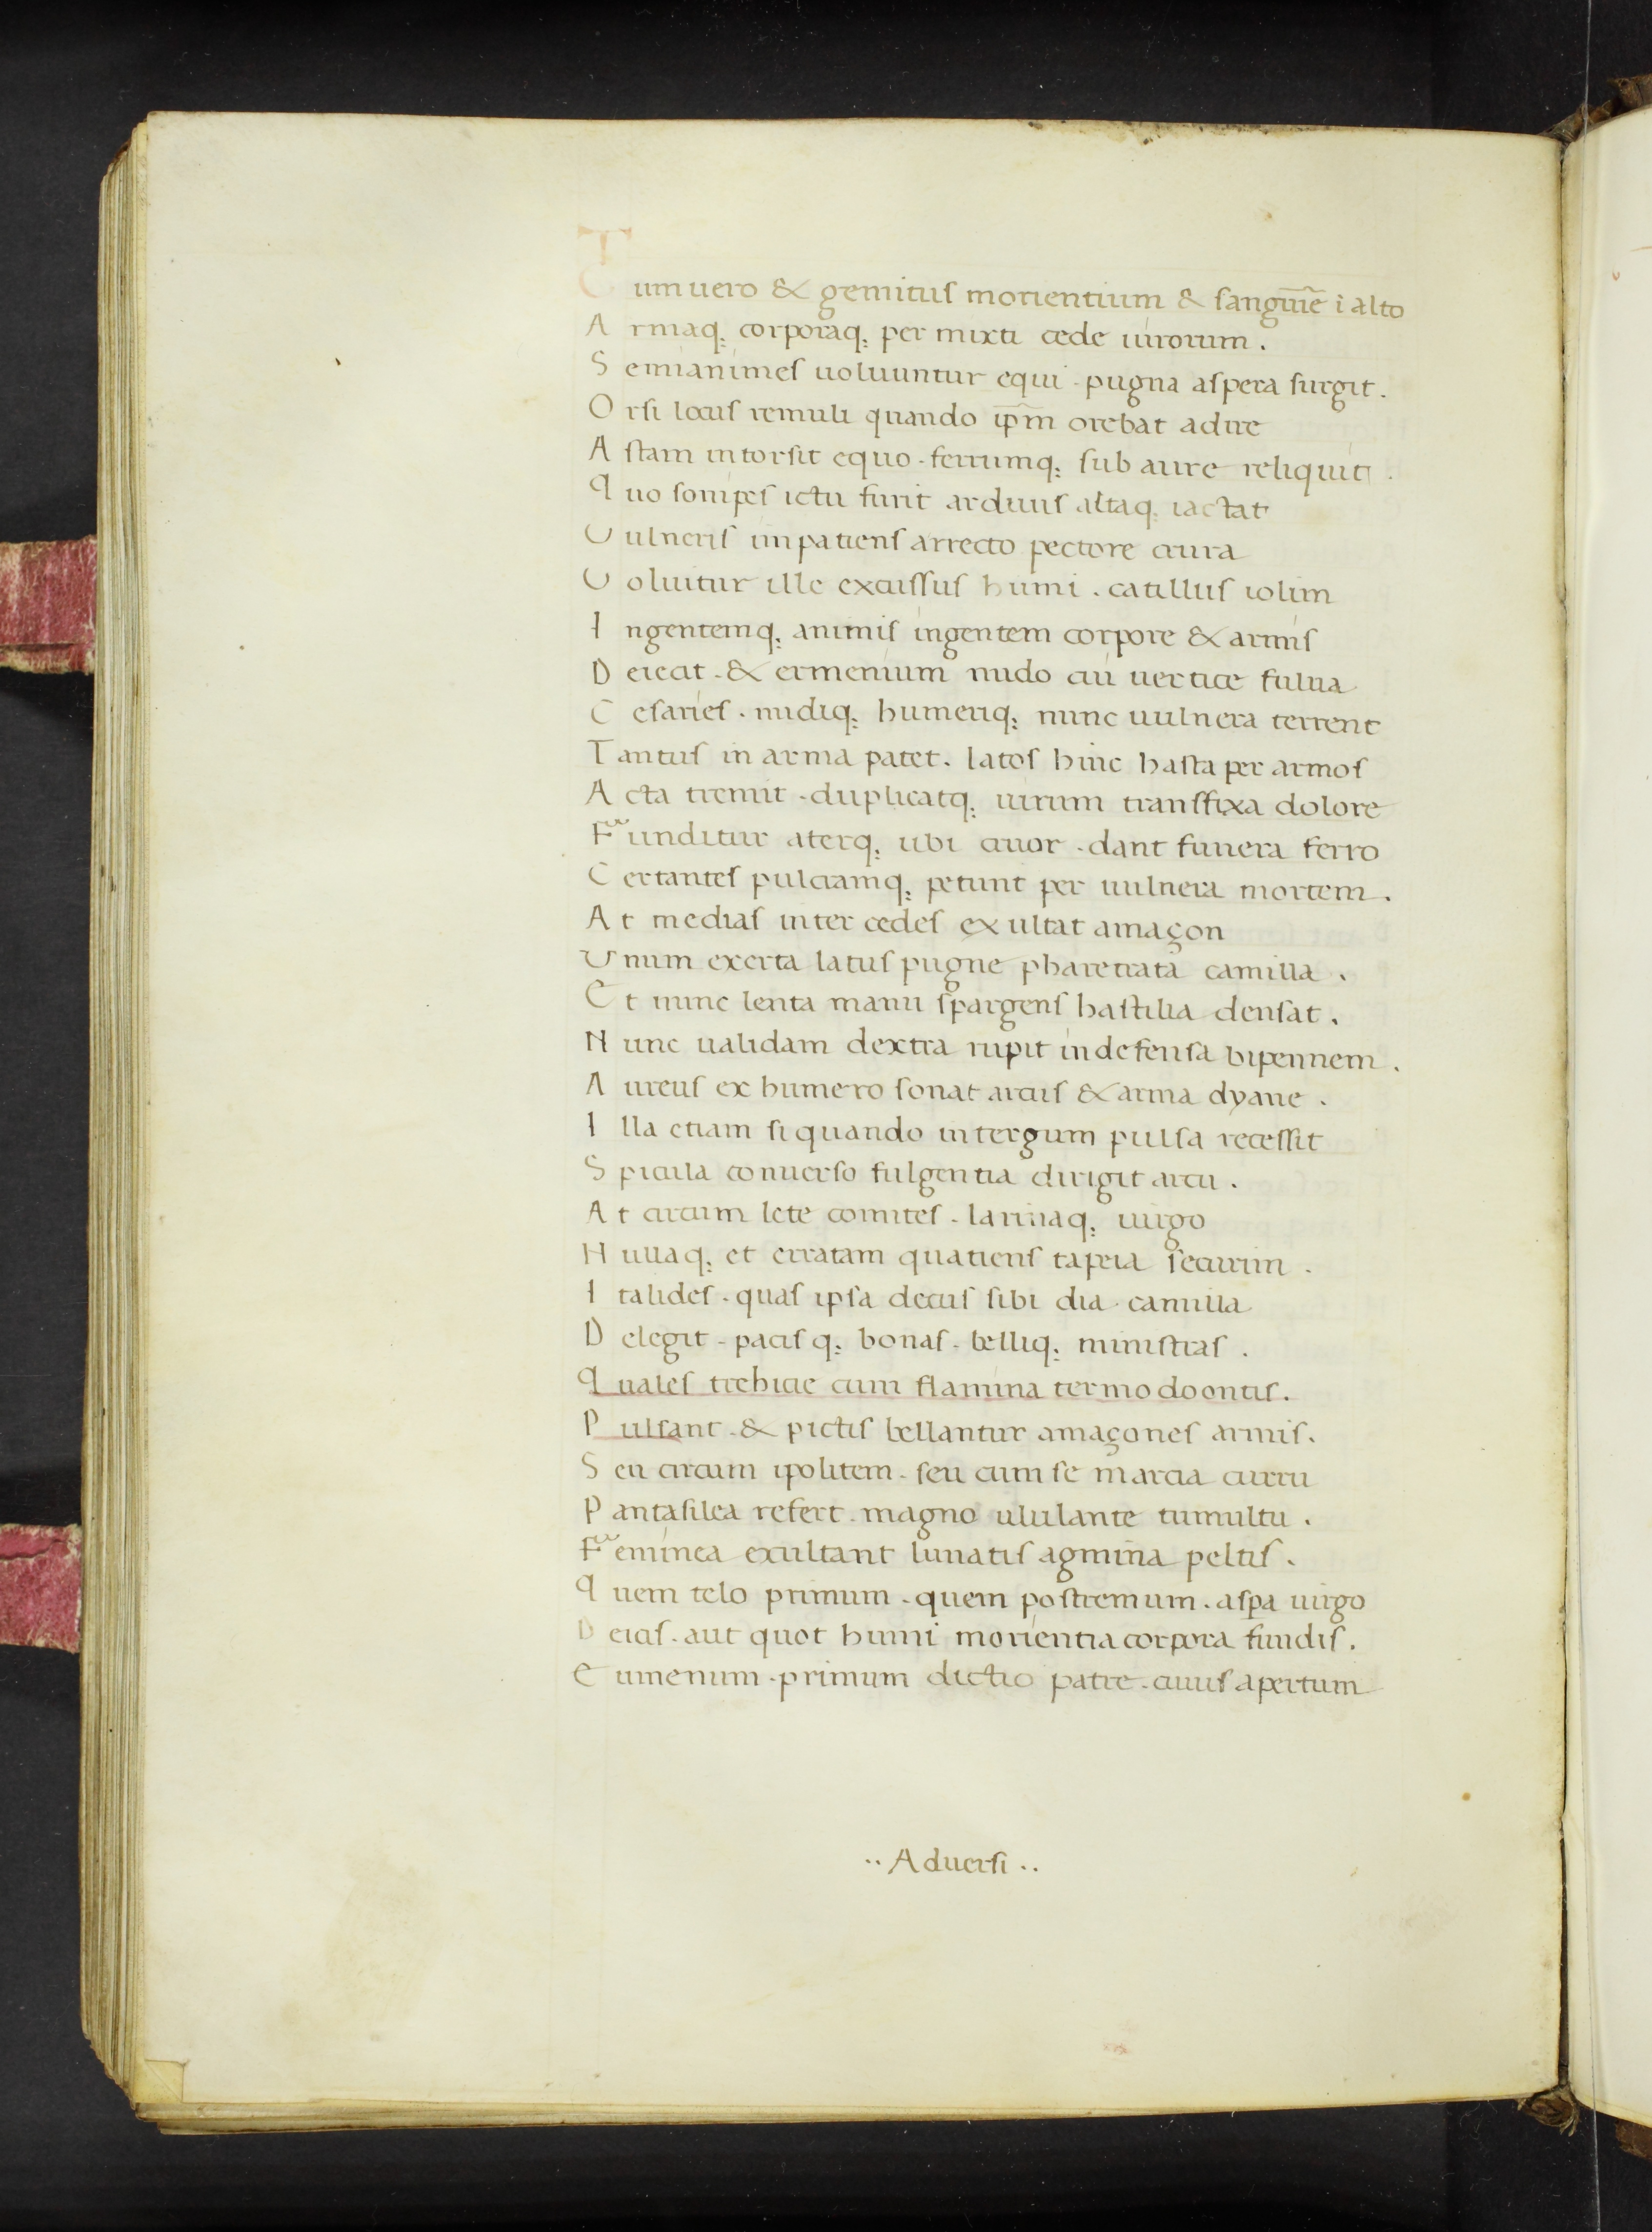 Tum uero & gemitus morientium & sangui̅e̅ i̅ alto
Armaq; corporaq; per mixti cede uirorum.
Semianimes uoluuntur equi. pugna aspera surgit.
Orsilocus remuli quando ip̅m orebat adire
Astam intorsit equo. ferrumq; sub aure reliquit.
Quo sonipes ictu furit arduus altaq; iactat
Uulneris impatiens arrecto pectore crura
Uoluitur ille excussus humi. catillus iolim
Ingentemq; animis ingentem corpore & armis
Deiecit. & ermenium nudo cui uertice fulua
Cesaries. nudiq; humeriq; nunc uulnera terrent
Tantus in arma patet. latos huic hasta per armos
Acta tremit. duplicatq; uirum transfixa dolore
Funditur aterq; ubi cruor. dant funera ferro
Certantes pulcramq; petunt per uulnera mortem.
At medias inter cedes exultat amaçon
Unum exerta latus pugne pharetrata camilla.
Et nunc lenta manu spargens hastilia densat.
Nunc ualidam dextra rupit indefensa bipennem.
Aureus ex humero sonat arcus & arma dyane.
Illa etiam si quando in tergum pulsa recessit
Spicula conuerso fulgentia dirigit arcu.
At circum lete comites. larinaq; uirgo
Nullaq; et erratam quatiens tapeia securim.
Italides. quas ipsa decus sibi dia camilla
Delegit. pacisq; bonas. belliq; ministras.
Quales trehicie cum flamina termodoontis.
Pulsant. & pictis bellantur amaçones armis.
Seu circum ipolitem. seu cum se marcia curru
Pantasilea refert. magno ululante tumultu.
Feminea exultant lunatis agmina peltis.
Quem telo primum. quem postremum. asp̅a uirgo
Deicis. aut quot humi morientia corpora fundis.
Eumenum. primum clictio patre. cuius apertum
..Aduersi..